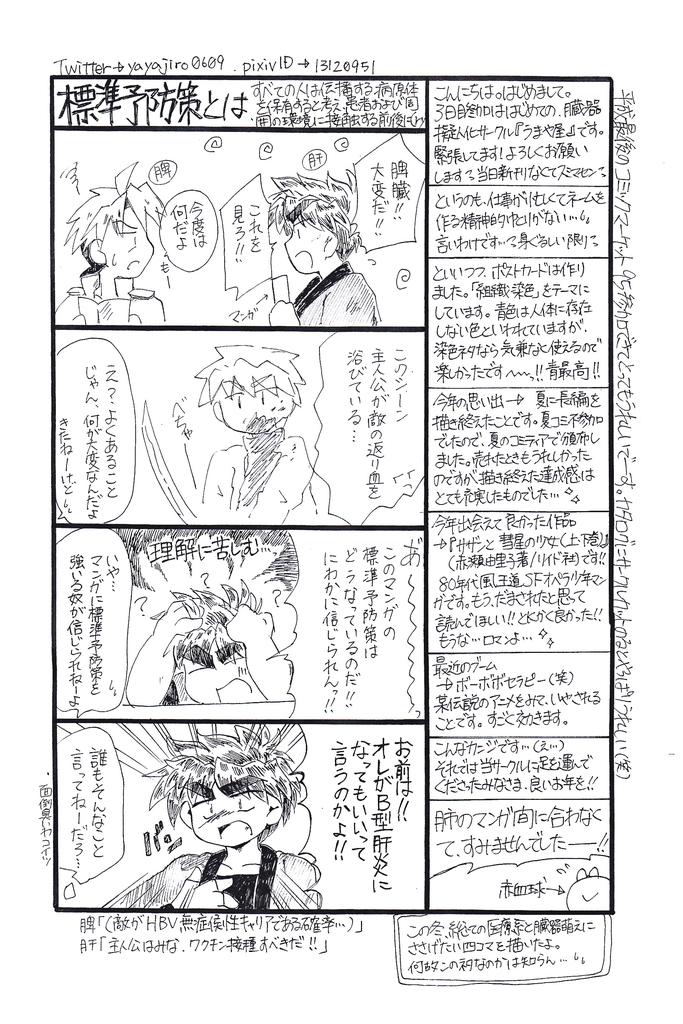 Twitter→yayajiro0609. pixivID→13120951
標準予防策とは
すべての人は伝播する病原体
を保有すると考え、患者および周
囲の環境に接触する前後には
脾
肝
脾臓!!
大変だ!!
これを
見ろ!!
マンガ→
今度は
何だよ
このシーン
主人公が敵の返り血を
浴びている…
べちゃ
え?よくあること
じゃん、何が大変なんだよ
きたねーけど…
あ〜
このマンガの
標準予防策は
どうなっているのだ!!
にわかに信じられんっ!!
理解に苦しむ…
?
?
?
いや…
マンガに標準予防策を
強いる奴が信じられねーよ
お前は!!
オレがB型肝炎に
なってもいいって
言うのかよ!!
バン
誰もそんなこと
言ってねーだろ…
面倒臭いわコイツ
脾「(敵がHBV無症候性キャリアである確率…)」
肝「主人公はみな、ワクチン接種すべきだ!!」
こんにちは。はじめまして。
3日目参加ははじめての、臓器
擬人化サークル『うまや屋』です。
緊張してます!よろしくお願い
します?当日新刊なくてスミマセン?
というのも、仕事が忙しくてネームを
作る精神的ゆとりがない…
言いわけです…?見ぐるしい限り?
といいつつ、ポストカードは作り
ました。「組織染色」をテーマに
しています。青色は人体に存在
しない色といわれていますが、
染色ネタなら気兼なく使えるので
楽しかったです〜〜!!青最高!!
今年の思い出→夏に長編を
描き終えたことです。夏コミ不参加
でたので、夏のコミティアで頒布し
ました。売れたときもうれしかった
のですが、描き終えた達成感は
とても充実したものでした…
今年出会えて良かった作品
→『サザンと彗星の少女(上下巻)』
(赤瀬由里子著/リイド社)です!!
80年代風王道SFオペラ少年マン
ガです。もう、だまされたと思って
読んでほしい!!とにかく良かった!!
もうな…ロマンよ…
最近のブーム
→ボーボボセラピー(笑)
某伝説のアニメをみて、いやされる
ことです。すごく効きます。
こんなカンジです…(え…)
それでは当サークルに足を運んで
くださったみなさま、良いお年を!!
肺のマンガ間に合わなく
て、すみませんでした――!!
赤血球→
この冬、総ての医療系と臓器萌えに
ささげたい四コマを描いたよ。
何故この初なのかは知らん…
平成最後のコミックマーケット95参加できてとてもうれしいでーす。カタログにサークルカットのるとやっぱりうれしい(笑)